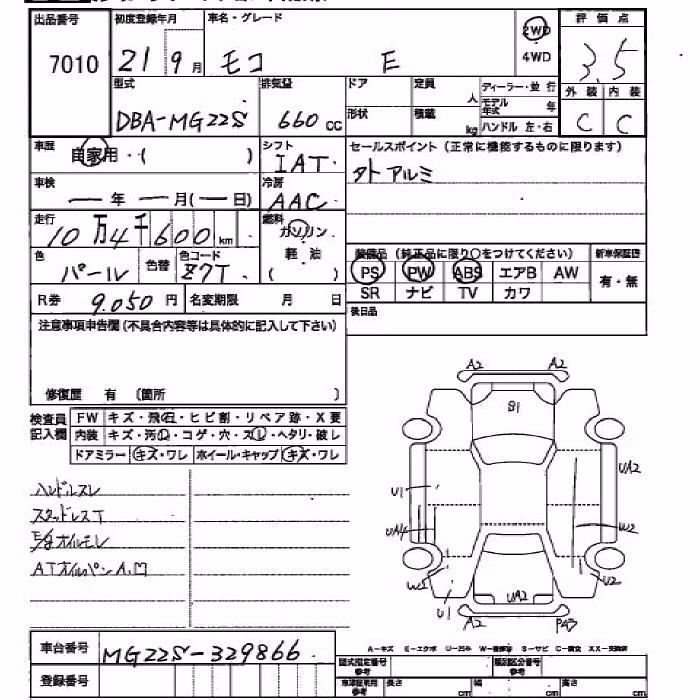 出品番号 初度登録年月 車名・グレード 2WD 評価点
7010 21 9月 モコ E 4WD 3.5
型式 排気量 ドア 定員 人 ディーラー・並行 外装 内装
DBA-MG22S 660cc 形状 積載 kg モデル年式 年 C C
ハンドル 左・右
車歴 自家用・( ) シフト セールスポイント(正常に機能するものに限ります)
IAT タトアルミ
車検 ー年 ー月(ー日) 冷房
AAC
走行 燃料
10万4千600km ガソリン
色 色替 色コード 軽油 装備品(純正品に限り○をつけてください) 新車保証書
パール Z7T ( ) PS PW ABS エアB AW 有・無
R券 9.050円 名変期限 月 日 SR ナビ TV カワ
注意事項申告欄(不具合内容等は具体的に記入して下さい) 後日品
修復歴 有 (箇所 )
検査員記入欄 FW キズ・飛石・ヒビ割・リペア跡・X要
内装 キズ・汚レ・コゲ・穴・スレ・ヘタリ・破レ
ドアミラー キズ・ワレ ホイール・キャップ キズ・ワレ
ハンドルスレ
スタッドレスT
E/gオイルモレ
ATオイルパンA.凹
A2 A2
S1
UA2
U1
UA4 W2
W2 U2
U1 UA2
A2 P43
車台番号 MG22S-329866
登録番号
A-キズ E-エクボ U-凹み W-補修跡 S-サビ C-腐食 XX-交換済
型式指定番号 参考 類別区分番号 参考
車庫証明用 参考 長さ cm 幅 cm 高さ cm